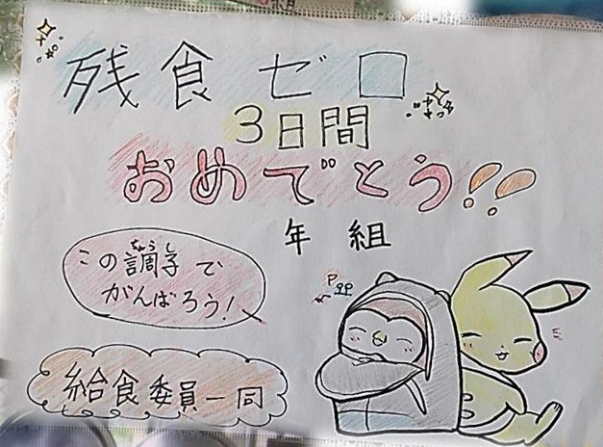 残食ゼロ
3日間
おめでとう!!
年 組
この調子で
ちょうし
がんばろう!
給食委員一同